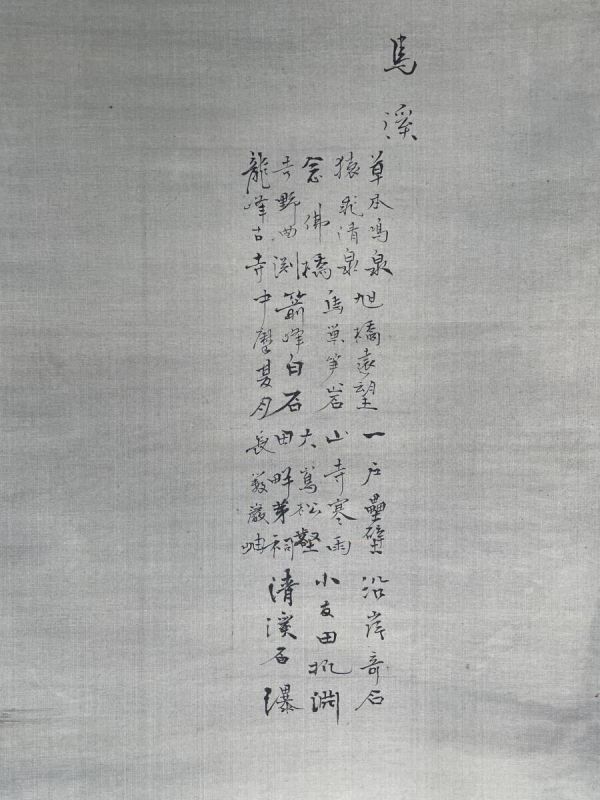 馬溪
草本鳴泉 旭橋遠望 一戸壘壁 沿岸奇石
猿飛清泉 馬巣笋岩 山寺寒雨 小友田机淵
念佛橋 大鳶松壑
吉野曲渕 箭峰白石 田畔茅祠 清溪石瀑
龍峰古寺 中摩夏月 長薮巌岫